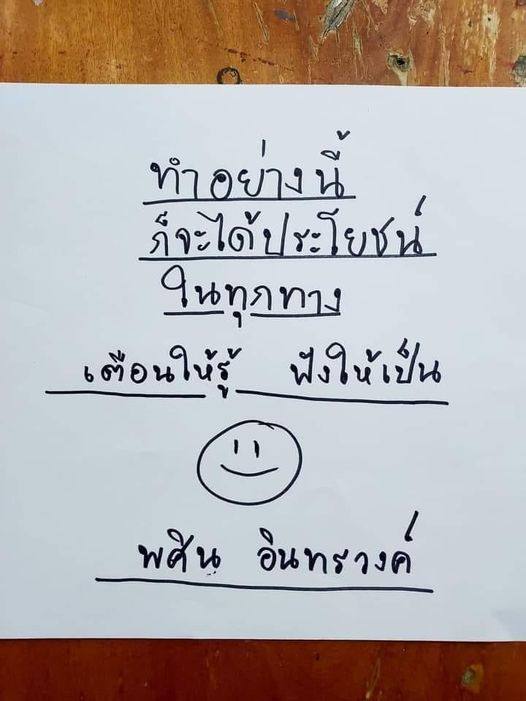 ทำอย่างนี้
ก็จะได้ประโยชน์
ในทุกทาง
เตือนให้รู้ ฟังให้เป็น
พศิน อินทรวงค์